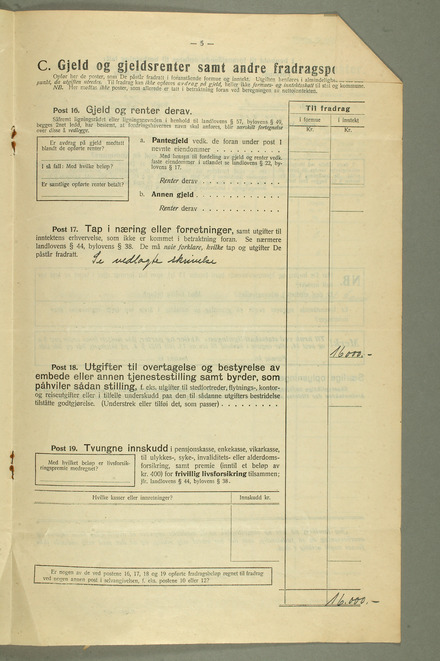 — 5 —
C. Gjeld og gjeldsrenter samt andre fradragsp
Opfør her de poster, som De påstår fradratt i foranstående formue og inntekt. Utgiften henføres i almindelighet
pantb. de utgiften vedrører. Til fradrag kan ikke opføres avdrag på gjeld, heller ikke formues- og inntektsskatt til stat og kommune.
NB. Her medtas ikke poster, som allerede er tatt i betraktning foran ved beregningen av nettoinntekten.
Til fradrag
i formue
i inntekt
Kr.
Kr.
Post 16. Gjeld og renter derav.
Såfremt ligningsrådet eller ligningsnevnden i henhold til landlovens § 57, bylovens § 49,
begges 2net ledd, har bestemt, at fordringshaverens navn skal anføres, blir særskilt fortegnelse
over disse å vedlegge.
Er avdrag på gjeld medtatt
blandt de opførte renter?
I så fall: Med hvilke beløp?
Er samtlige opførte renter betalt?
a. Pantegjeld vedk. de foran under post 1
nevnte eiendommer
Med hensyn til fordeling av gjeld og renter vedk.
faste eiendommer i utlandet se landlovens § 22, by-
lovens § 17.
Renter derav
b. Annen gjeld
Renter derav
Post 17. Tap i næring eller forretninger, samt utgifter til
inntektens erhvervelse, som ikke er kommet i betraktning foran. Se nærmere
landlovens § 44, bylovens § 38. De må nøie forklare, hvilke tap og utgifter De
påstår fradratt.
Se vedlagte skrivelse
16000.-
Post 18. Utgifter til overtagelse og bestyrelse av
embede eller annen tjenestestilling samt byrder, som
påhviler sådan stilling, f. eks. utgifter til stedfortreder, flytnings-, kontor-
og reiseutgifter eller i tilfelle underskudd paa den til sådanne utgifters bestridelse
tilståtte godtgjørelse. (Understrek eller tilføi det, som passer)
Post 19. Tvungne innskudd i pensjonskasse, enkekasse, vikarkasse,
til ulykkes-, syke-, invaliditets- eller alderdoms-
forsikring, samt premie (inntil et beløp av
kr. 400) for frivillig livsforsikring tilsammen;
jfr. landlovens § 44, bylovens § 38.
Med hvilket beløp er livsforsik-
ringspremie medregnet?
Hvilke kasser eller innretninger?
Innskudd kr.
Er nogen av de ved postene 16, 17, 18 og 19 opførte fradragsbeløp regnet til fradrag
ved nogen annen post i selvangivelsen, f. eks. postene 10 eller 12?
16.000.-